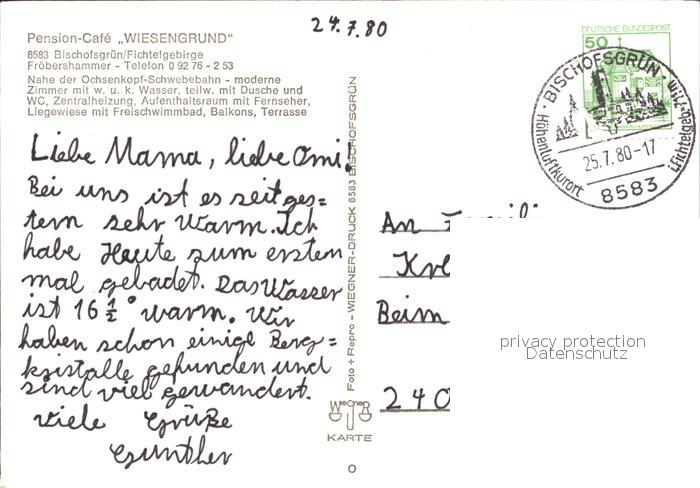 24.7.80
Pension-Café „WIESENGRUND"
8583 Bischofsgrün/Fichtelgebirge
Fröbershammer - Telefon 0 92 76 - 2 53
Nahe der Ochsenkopf-Schwebebahn - moderne
Zimmer mit w. u. k. Wasser, teilw. mit Dusche und
WC, Zentralheizung, Aufenthaltsraum mit Fernseher,
Liegewiese mit Freischwimmbad, Balkons, Terrasse
Liebe Mama, liebe Omi!
Bei uns ist es seit ges=
tern sehr warm. Ich
habe Heute zum ersten
mal gebadet. Das Wasser
ist 16 ½° warm. Wir
haben schon einige Berg=
kristalle gefunden und
sind viel gewandert.
Viele Grüße
Gunther
Foto + Repro - WIEGNER-DRUCK 8583 BISCHOFSGRÜN
KARTE
DEUTSCHE BUNDESPOST
50
BISCHOFSGRÜN
Höhenluftkurort
i.Fichtelgebirge
25.7.80-17
8583
An
Beim
240
privacy protection
Datenschutz